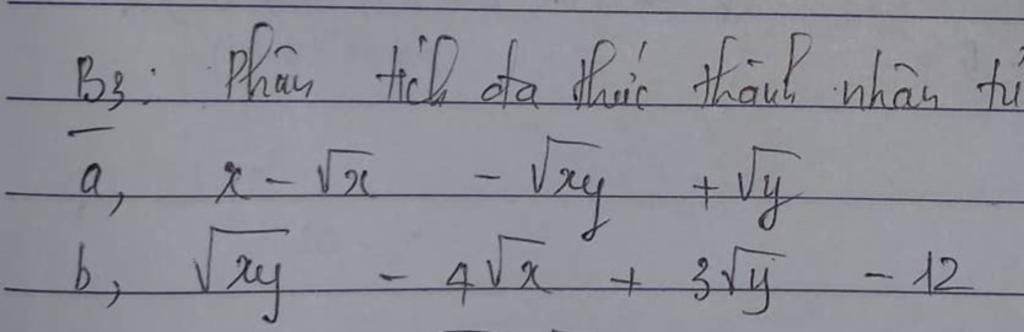 B3: Phân tích đa thức thành nhân tử
a, x - √x - √xy + √y
b, √xy - 4√x + 3√y - 12